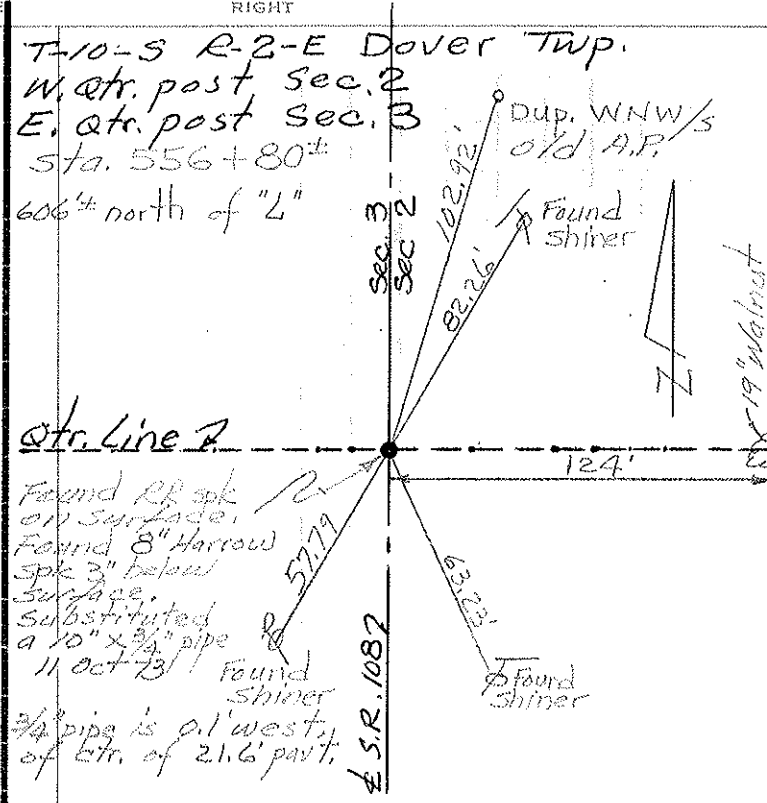 RIGHT
T-10-S R-2-E Dover Twp.
W. Qtr. post Sec. 2
E. Qtr. post Sec. 3
Sta. 556+80±
606'± north of "L"
Dup. WNW/S
old A.P.
102.92'
Found
Shiner
82.26'
Sec 3
Sec 2
Z
19" Walnut
Qtr. Line
124'
Found RR spk
on surface.
Found 8" Harrow
spk 3" below
surface.
Substituted
a 10" x 3/4" pipe
11 Oct 73
57.79
63.23'
Found
Shiner
Found
Shiner
3/4" pipe is 0.1' west
of ctr. of 21.6' pavt.
℄ S.R. 1087